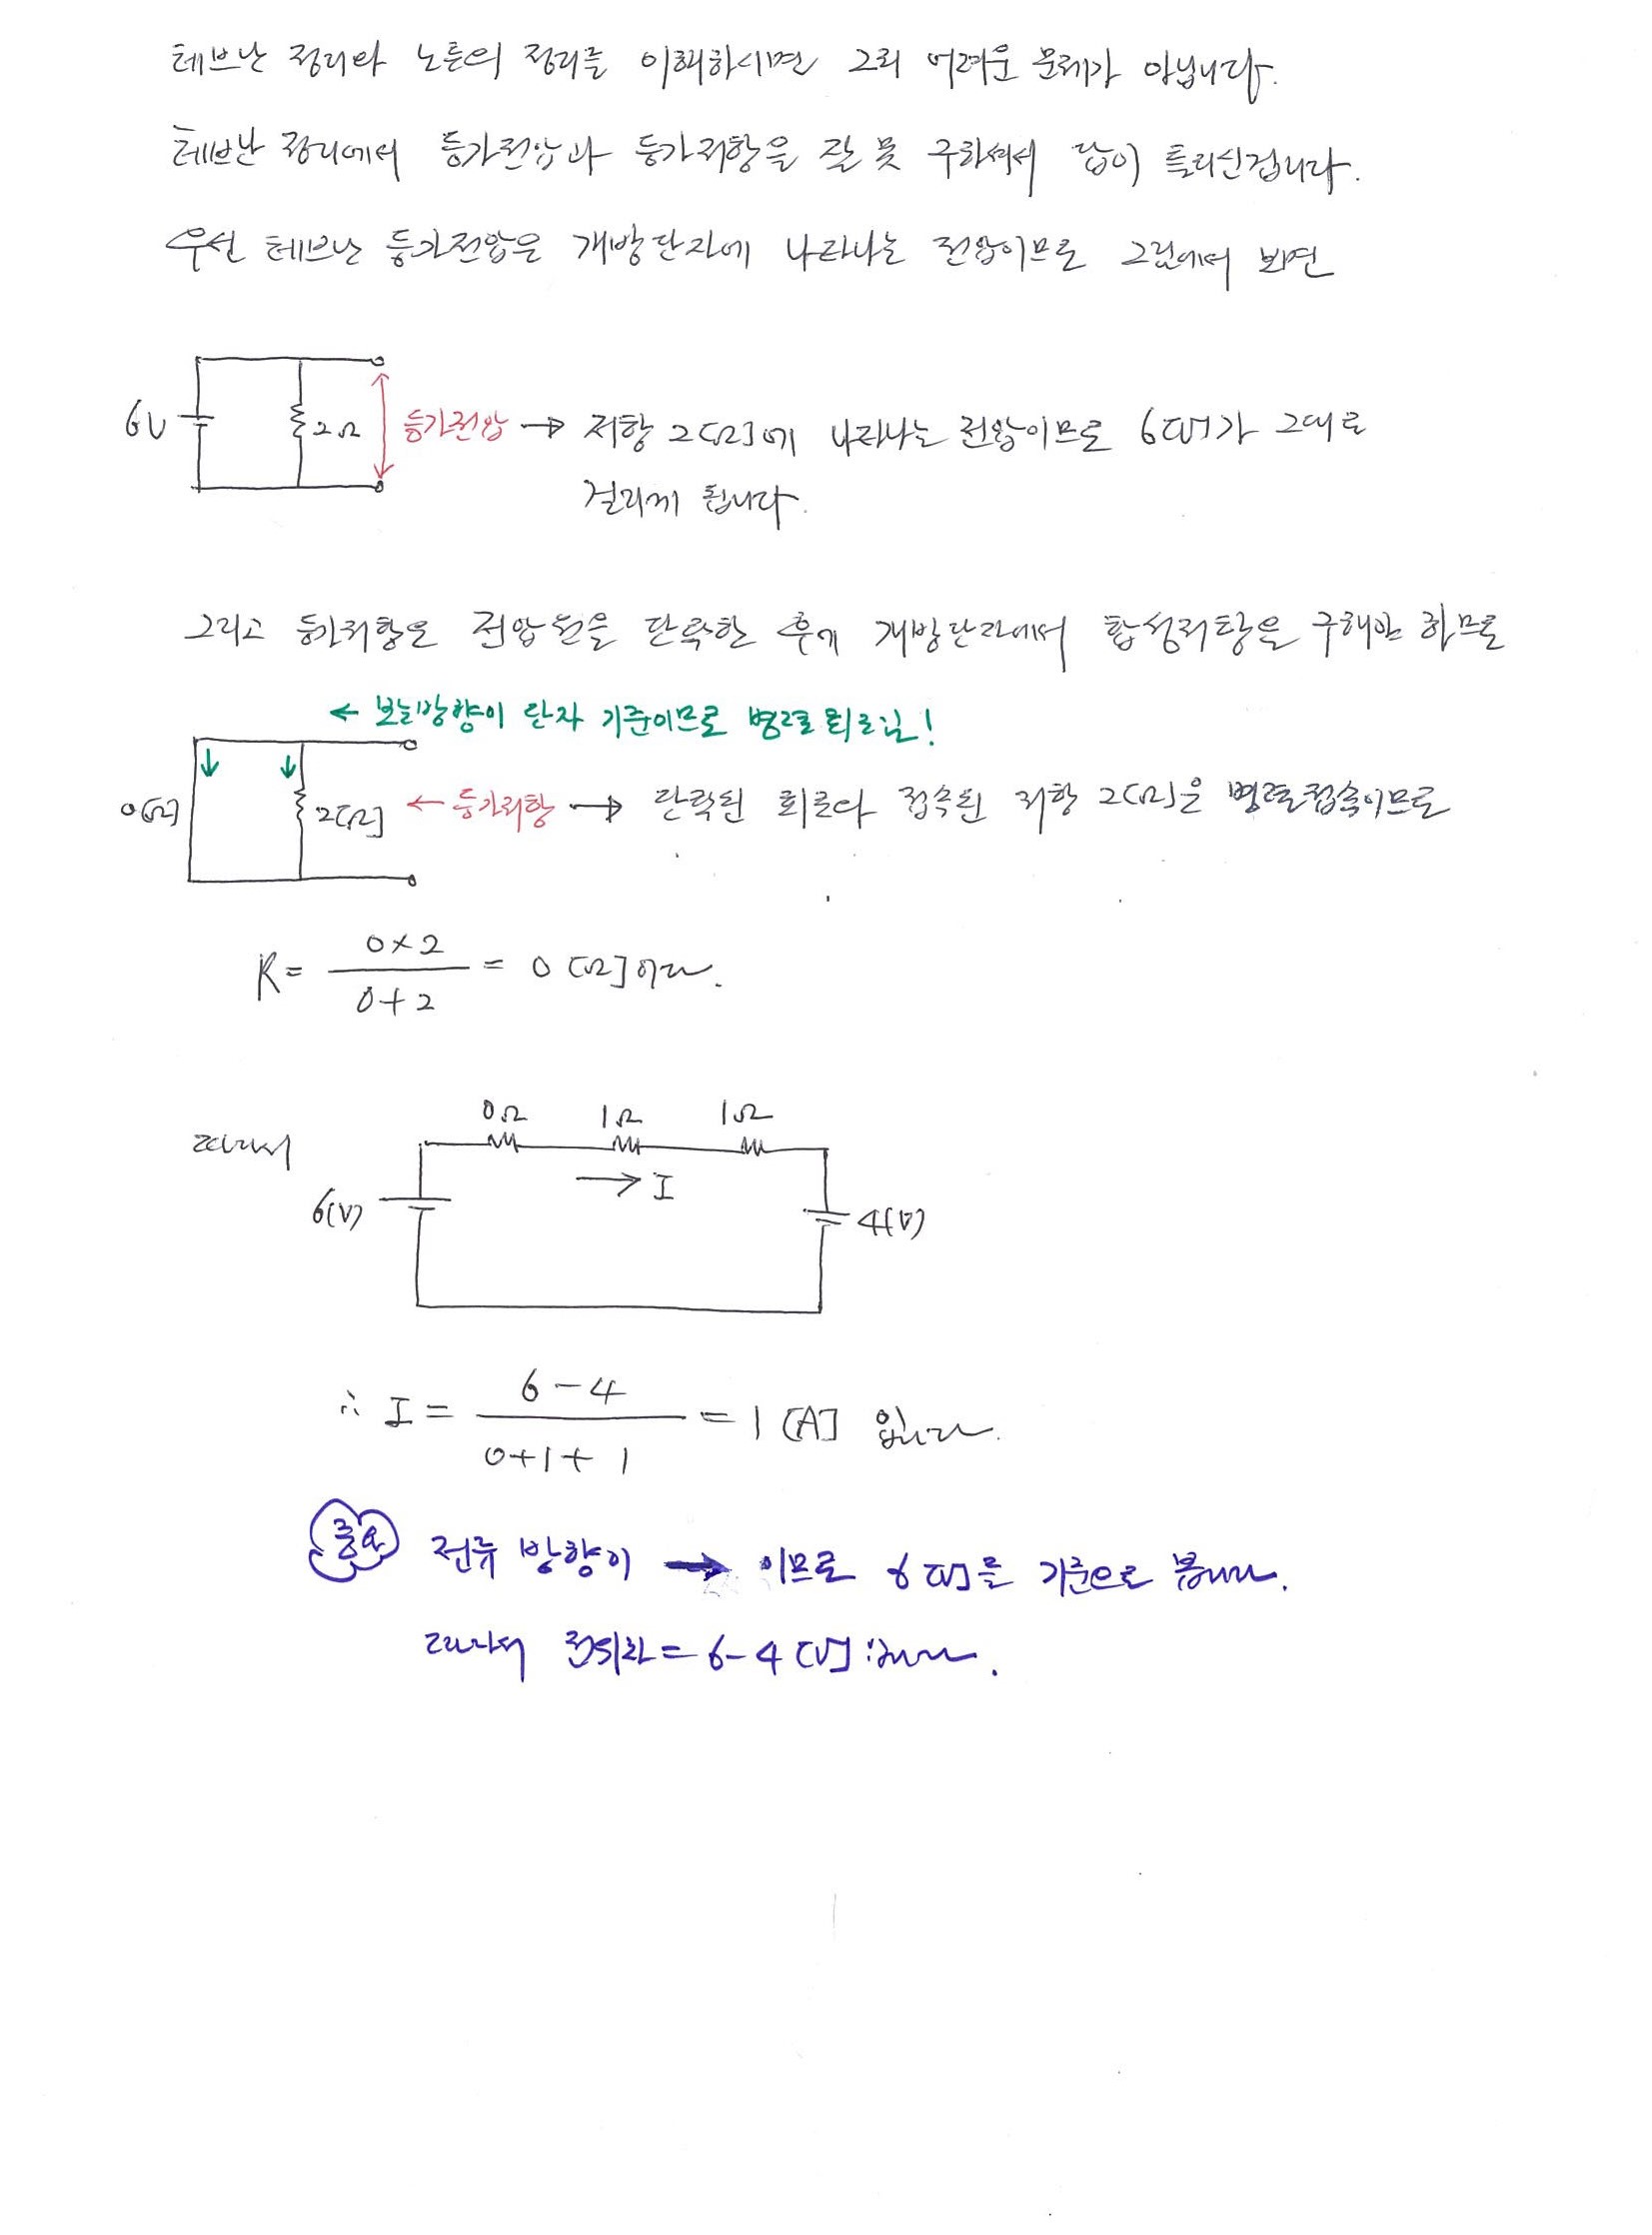 테브난 정리와 노튼의 정리를 이해하시면 그리 어려운 문제가 아닙니다.
테브난 정리에서 등가전압과 등가저항을 잘 못 구하셔서 답이 틀리신겁니다.
우선 테브난 등가전압은 개방단자에 나타나는 전압이므로 그림에서 보면
6V
2Ω
등가전압 → 저항 2[Ω]에 나타나는 전압이므로 6[V]가 그대로
걸리게 됩니다.
그리고 등가저항은 전압원을 단락한 후에 개방단자에서 합성저항을 구해야 하므로
← 보는방향이 단자 기준이므로 병렬회로임!
0[Ω]
2[Ω]
← 등가저항 → 단락된 회로와 접속된 저항 2[Ω]은 병렬접속이므로
R = 0×2 / 0+2 = 0 [Ω]이다.
0Ω 1Ω 1Ω
따라서
→ I
6(V)
4(V)
∴ I = 6-4 / 0+1+1 = 1 [A] 입니다.
중요 전류 방향이 → 이므로 6[V]를 기준으로 봅니다.
따라서 전위차 = 6-4 [V] 입니다.